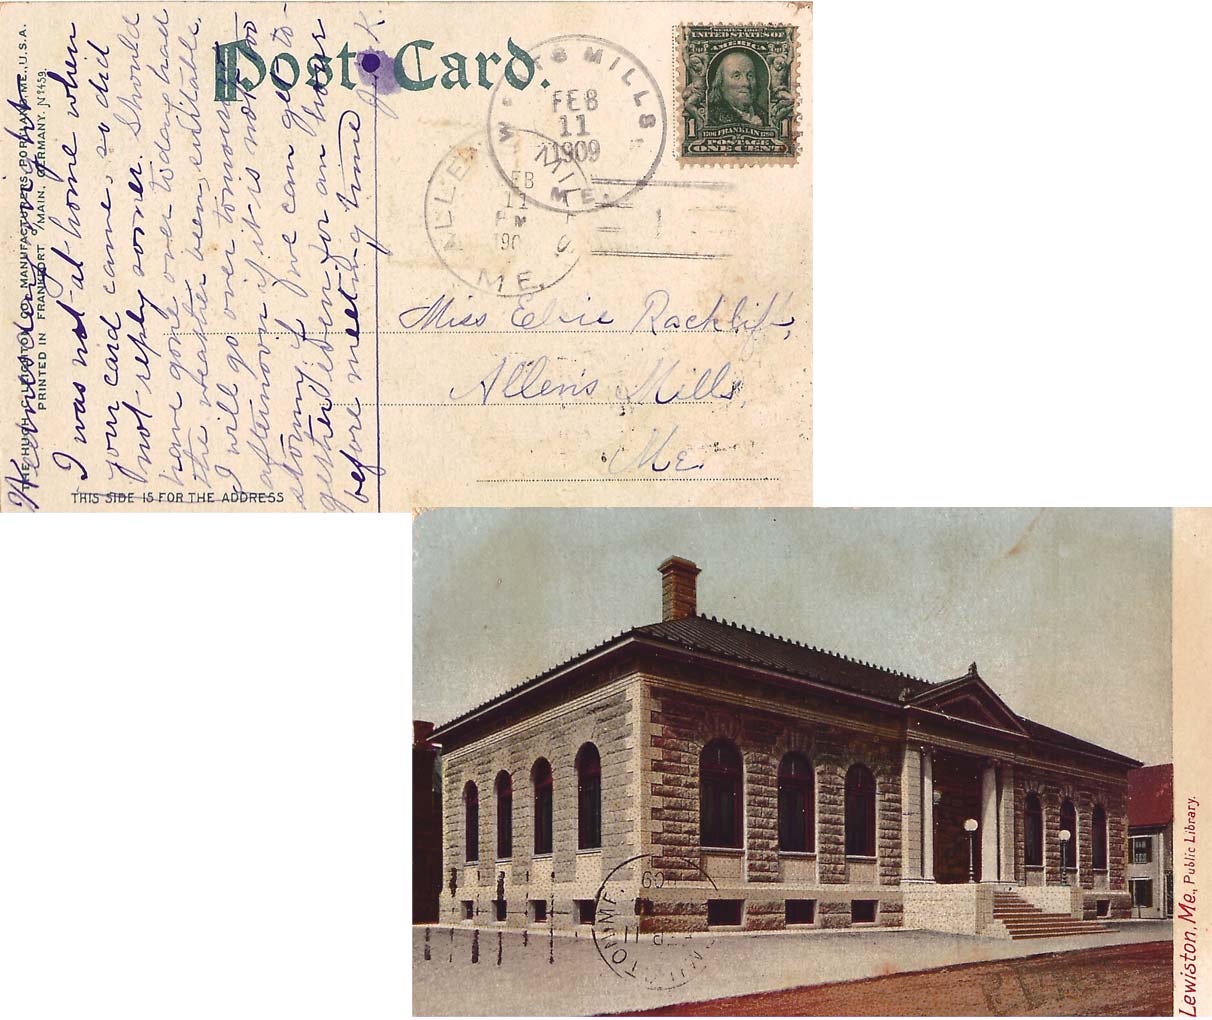 Post Card.
THE HUGH C. LEIGHTON CO., MANUFACTURERS, PORTLAND, ME., U.S.A.
PRINTED IN FRANKFORT O/MAIN, GERMANY. No 1459.
THIS SIDE IS FOR THE ADDRESS
SERIES 1902
UNITED STATES OF
AMERICA
1706 FRANKLIN 1790
1 POSTAGE 1
ONE CENT
MILLS
FEB
11
1909
ME.
ALLE MIL
EB
11
PM
190
ME.
1
Wednesday night
I was not at home when
your card came, so did
not reply sooner. Should
have gone over today had
the weather been suitable.
I will go over tomorrow
afternoon if it is not too
stormy if we can get to-
gether even for an hour
before meeting time
K.
Miss Elsie Rackliff,
Allen's Mills,
Me.
Lewiston, Me., Public Library.